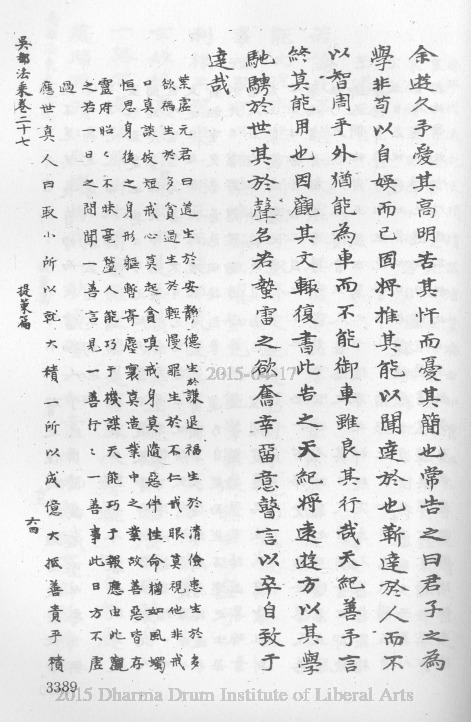 余遊久予愛其高明苦其忤而憂其簡也常告之曰君子之為
學非苟以自娛而已固將推其能以聞達於世蘄達於人而不
以智周乎外猶能為車而不能御車雖良其行哉天紀善予言
終其能用也因觀其文輒復書此告之天紀將遠遊方以其學
馳騁於世其於聲名若蟄雷之欲奮幸留意瞽言以卒自致于
達哉
紫虛元君曰道生於安靜德生於謙退福生於清儉患生於多
欲禍生於多貪過生於輕慢罪生於不仁戒眼莫視他非戒
口莫談彼短戒心莫起貪嗔戒身莫隨惡伴性命猶如風燭
恒思身後之身形軀暫寄塵寰莫造業中業故善惡皆存
靈府昭〻不昧毫釐人能巧于機謀天能巧于報應由此觀
之若一日之間聞一善言見一善行〻一善事此日方不虛
過
應世真人曰取小所以就大積 所以成億大抵善貴乎積
吳都法乘卷二十七 提策篇 六四
3389
2015-04-17
2015 Dharma Drum Institute of Liberal Arts